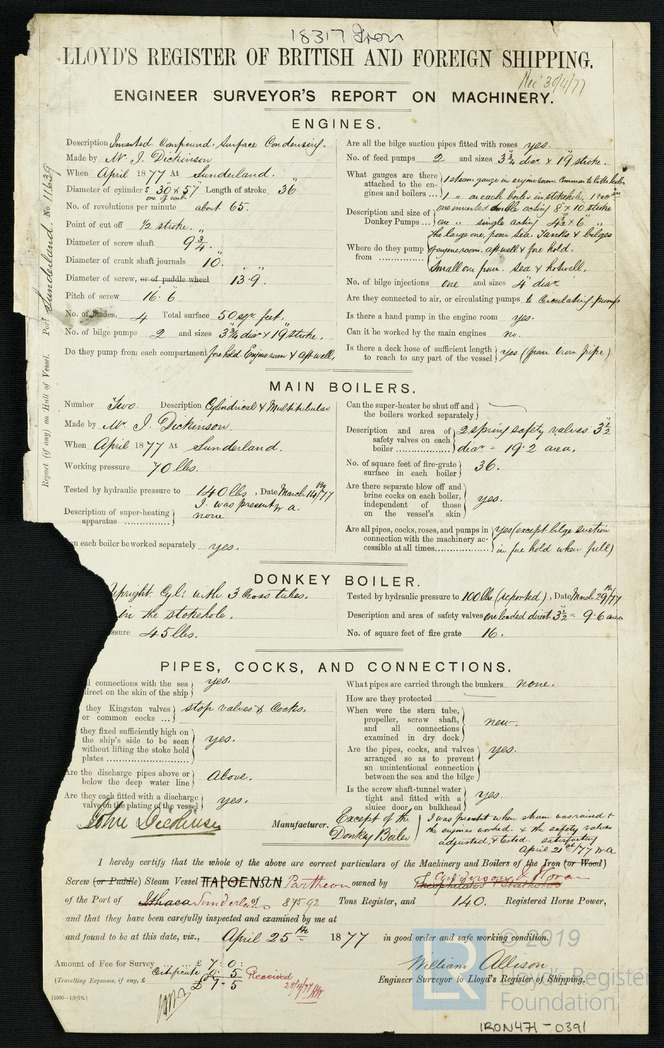 18317 Iron
LLOYD'S REGISTER OF BRITISH AND FOREIGN SHIPPING.
Rec 30/4/77
ENGINEER SURVEYOR'S REPORT ON MACHINERY.
Report (if any) on Hull of Vessel. Port Sunderland. No 11639
ENGINES.
Description Inverted Compound. Surface Condensing.
Made by Mr. J. Dickinson
When April 1877 At Sunderland.
Diameter of cylinders 30" x 57" Length of stroke 36"
one of each
No. of revolutions per minute about 65.
Point of cut off 1/2 stroke.
Diameter of screw shaft 9 3/4"
Diameter of crank shaft journals 10."
Diameter of screw, or of paddle wheel 13. 9.
Pitch of screw 16. 6
No. of blades, 4 Total surface 50 sqr feet.
No. of bilge pumps 2 and sizes 3 3/4 diar x 19" stroke.
Do they pump from each compartment fore hold Engine room & aft well,
Are all the bilge suction pipes fitted with roses yes.
No. of feed pumps 2 and sizes 3 3/4 diar x 19" stroke.
What gauges are there attached to the engines and boilers
1 steam gauge in engine room common to both boilers
1 " on each boiler in stokehole, 1 vac
Description and size of Donkey Pumps
one inverted double acting 8" x 10" stroke
one " single acting 4 1/2 x 6. "
Where do they pump from
The large one, from sea. Tanks & bilges
of engine room. aft well & fore hold.
Small one from sea & hotwell.
No. of bilge injections one and sizes 4" diar.
Are they connected to air, or circulating pumps to Circulating pump
Is there a hand pump in the engine room yes.
Can it be worked by the main engines no.
Is there a deck hose of sufficient length to reach to any part of the vessel yes (from iron pipe)
MAIN BOILERS.
Number Two. Description Cylindrical & Multitubular
Made by Mr. J. Dickinson.
When April 1877 At Sunderland.
Working pressure 70 lbs.
Tested by hydraulic pressure to 140 lbs, Date March 14th/77
I was present W A.
Description of super-heating apparatus none
can each boiler be worked separately yes.
Can the super-heater be shut off and the boilers worked separately
Description and area of safety valves on each boiler 2 spring safety valves 3 1/2" diar = 19.2 area.
No. of square feet of fire-grate surface in each boiler 36.
Are there separate blow off and brine cocks on each boiler, independent of those on the vessel's skin yes.
Are all pipes, cocks, roses, and pumps in connection with the machinery accessible at all times yes (except bilge suction in fore hold when full)
DONKEY BOILER.
Upright Cyl: with 3 cross tubes.
in the stokehole.
ssure 45 lbs.
Tested by hydraulic pressure to 100 lbs (reported), Date March 29th/77
Description and area of safety valves one loaded direct 3 1/2" = 9.6 area
No. of square feet of fire grate 16.
PIPES, COCKS, AND CONNECTIONS.
ll connections with the sea direct on the skin of the ship yes.
they Kingston valves or common cocks stop valves & Cocks.
they fixed sufficiently high on the ship's side to be seen without lifting the stoke hold plates yes.
Are the discharge pipes above or below the deep water line Above.
Are they each fitted with a discharge valve on the plating of the vessel yes.
What pipes are carried through the bunkers none.
How are they protected
When were the stern tube, propeller, screw shaft, and all connections examined in dry dock new.
Are the pipes, cocks, and valves arranged so as to prevent an unintentional connection between the sea and the bilge yes.
Is the screw shaft-tunnel water tight and fitted with a sluice door on bulkhead yes.
John Dickinson Manufacturer. Except of the Donkey Boiler
I was present when steam was raised & the engines worked. & the safety valves adjusted, & tested. satisfactory
April 21st/77 W A
I hereby certify that the whole of the above are correct particulars of the Machinery and Boilers of the Iron (or Wood)
Screw (or Paddle) Steam Vessel ΠΑΡΘΕΝΩΝ Parthenon owned by
of the Port of Ithaca Sunderland of 875.92 Tons Register, and 140. Registered Horse Power,
and that they have been carefully inspected and examined by me at
and found to be at this date, viz., April 25th 1877 in good order and safe working condition.
Amount of Fee for Survey £ 7: 0:
Certificate 0: 5
(Travelling Expenses, if any, £ £ 7 - 5 Received 28/4/77
William Allison
Engineer Surveyor to Lloyd's Register of Shipping.
© 2019
LR Lloyd's Register
Foundation
IRON471-0391